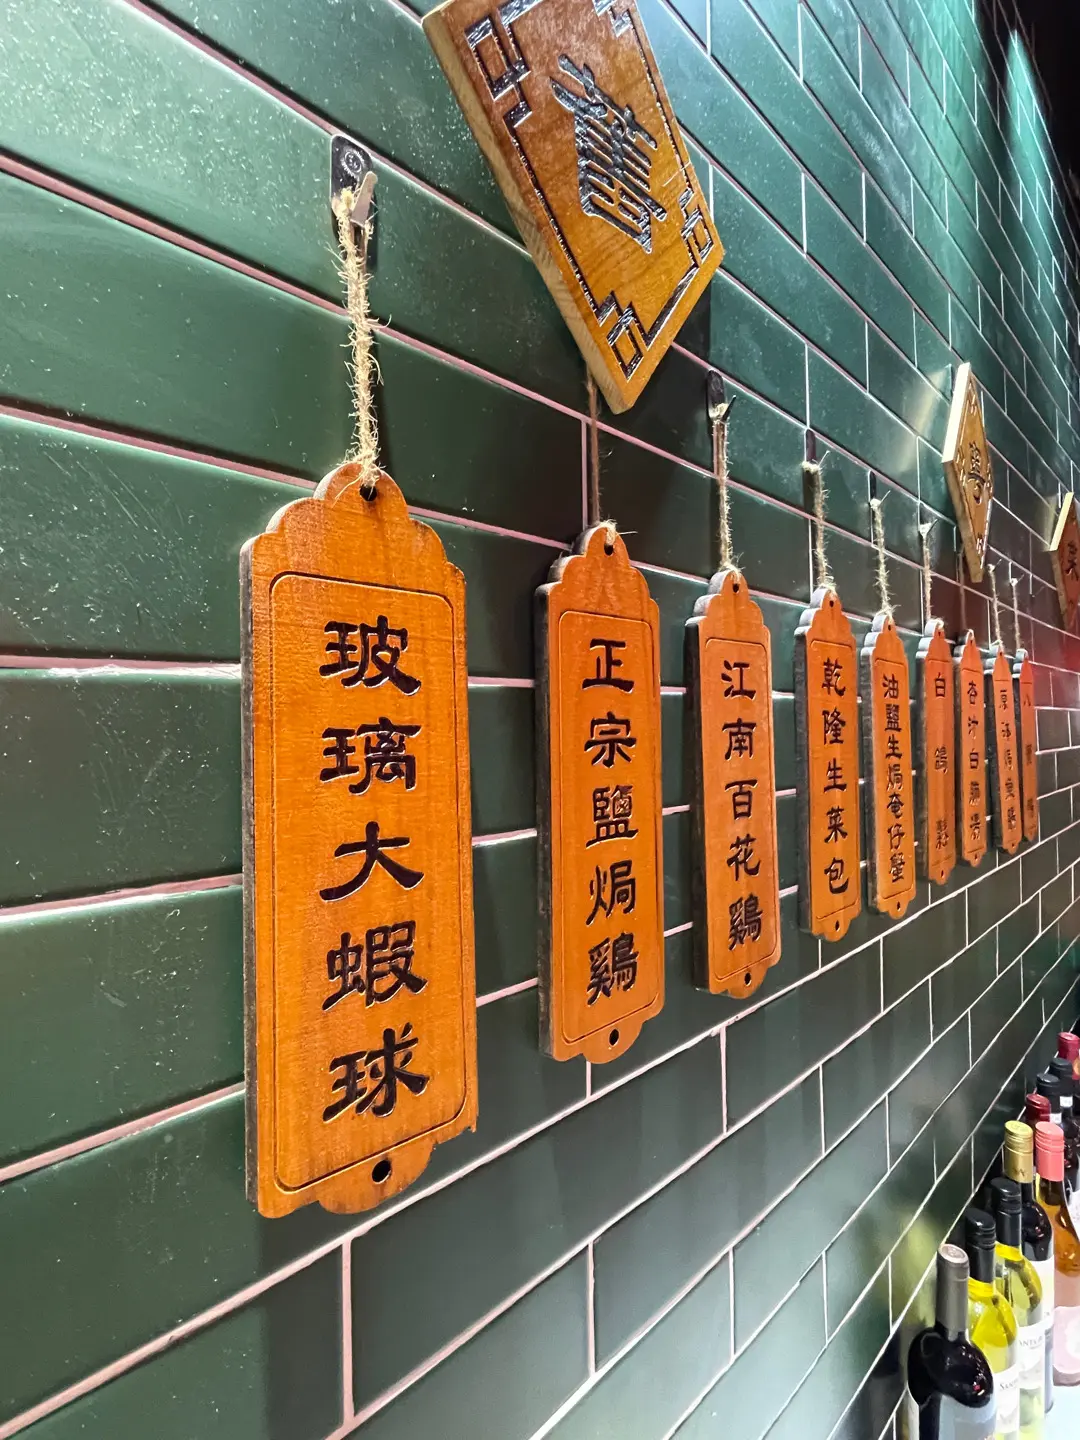 玻璃大蝦球
正宗鹽焗鷄
江南百花鷄
乾隆生菜包
油鹽生焗奄仔蟹
白鴿
杏汁白肺湯
粵
菜